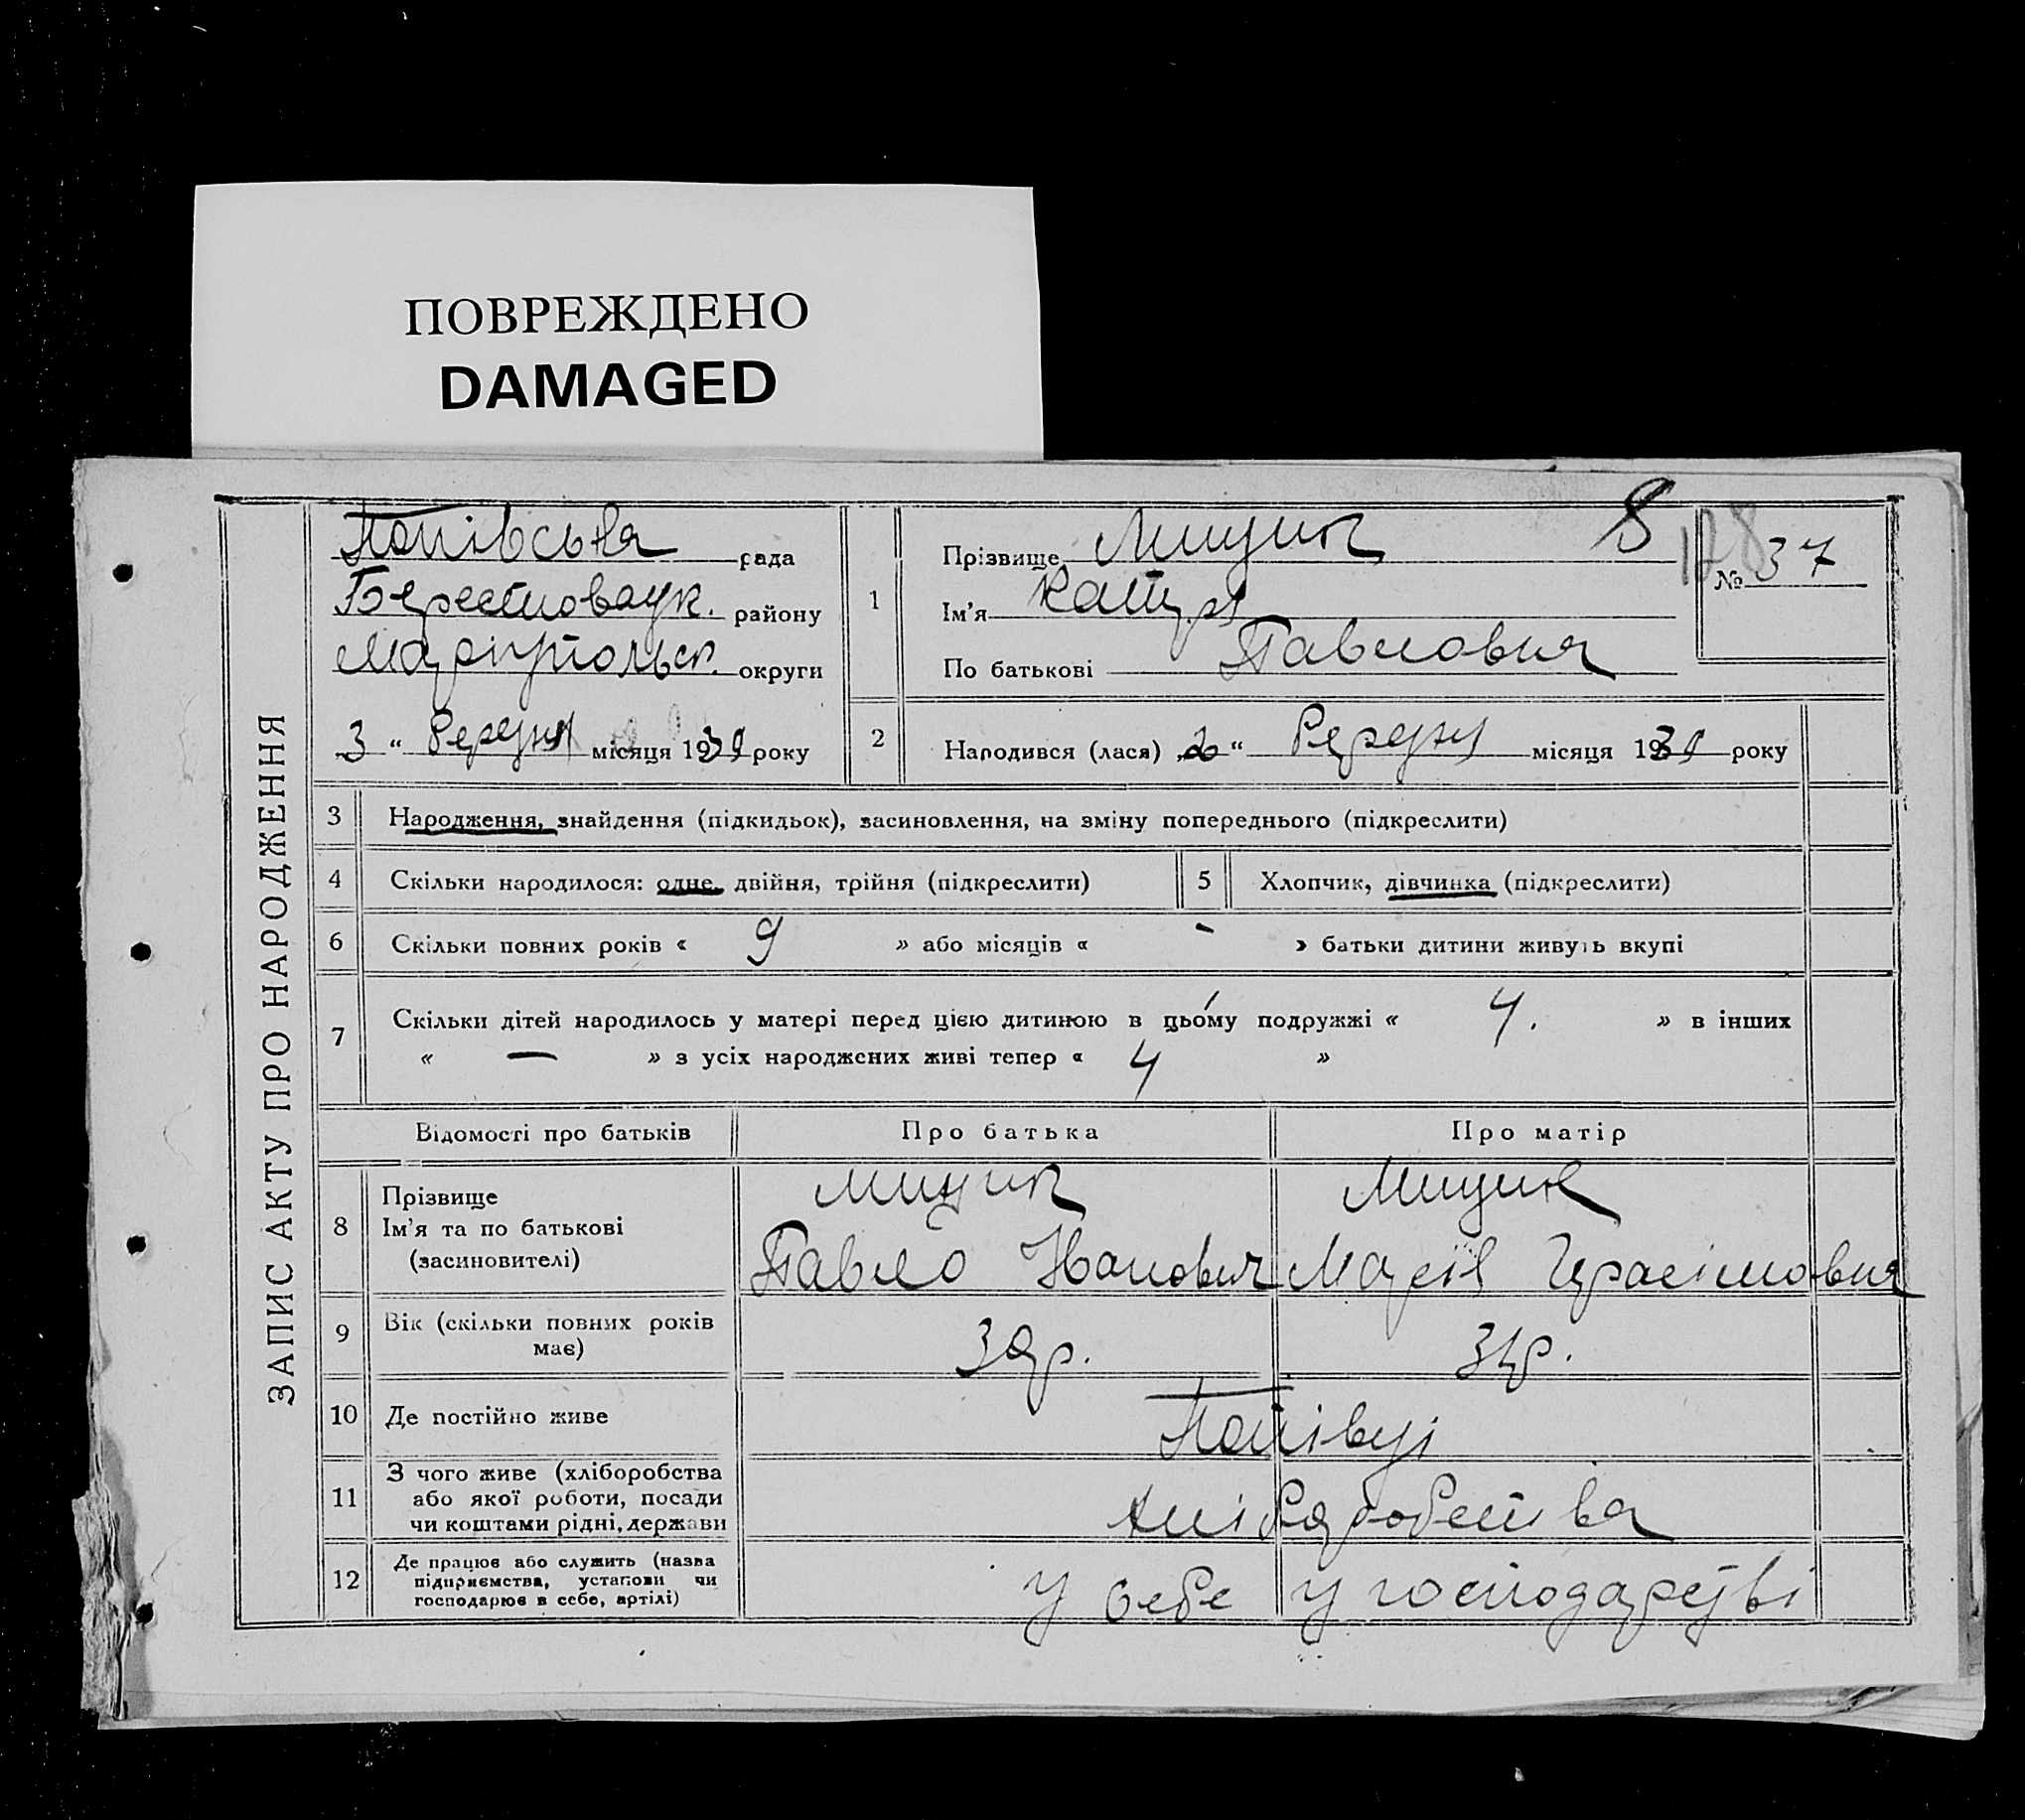 ПОВРЕЖДЕНО
DAMAGED
ЗАПИС АКТУ ПРО НАРОДЖЕННЯ
Попівська рада
Берестовацк. району
Маріупольск. округи
3 “ Березня місяця 1930 року
1
Прізвище Мицик
Ім'я Катря
По батькові Павловна
8
128
№ 37
2
Народився (лася) 2 “ Березня місяця 1930 року
3 Народження, знайдення (підкидьок), засиновлення, на зміну попереднього (підкреслити)
4 Скільки народилося: одне, двійня, трійня (підкреслити)
5 Хлопчик, дівчинка (підкреслити)
6 Скільки повних років « 9 » або місяців « - » батьки дитини живуть вкупі
7 Скільки дітей народилось у матері перед цією дитиною в цьому подружжі « 4. » в інших
« — » з усіх народжених живі тепер « 4 »
Відомості про батьків Про батька Про матір
8 Прізвище Мицик Мицик
Ім'я та по батькові
(засиновителі) Павло Марія Герасімовна
9 Вік (скільки повних років має) р. 31р.
10 Де постійно живе Попівці
11 З чого живе (хліборобства
або якої роботи, посади
чи коштами рідні, держави
хліборобства
12 Де працює або служить (назва
підприємства, установи чи
господарює в себе, артілі)
у себе у господарстві